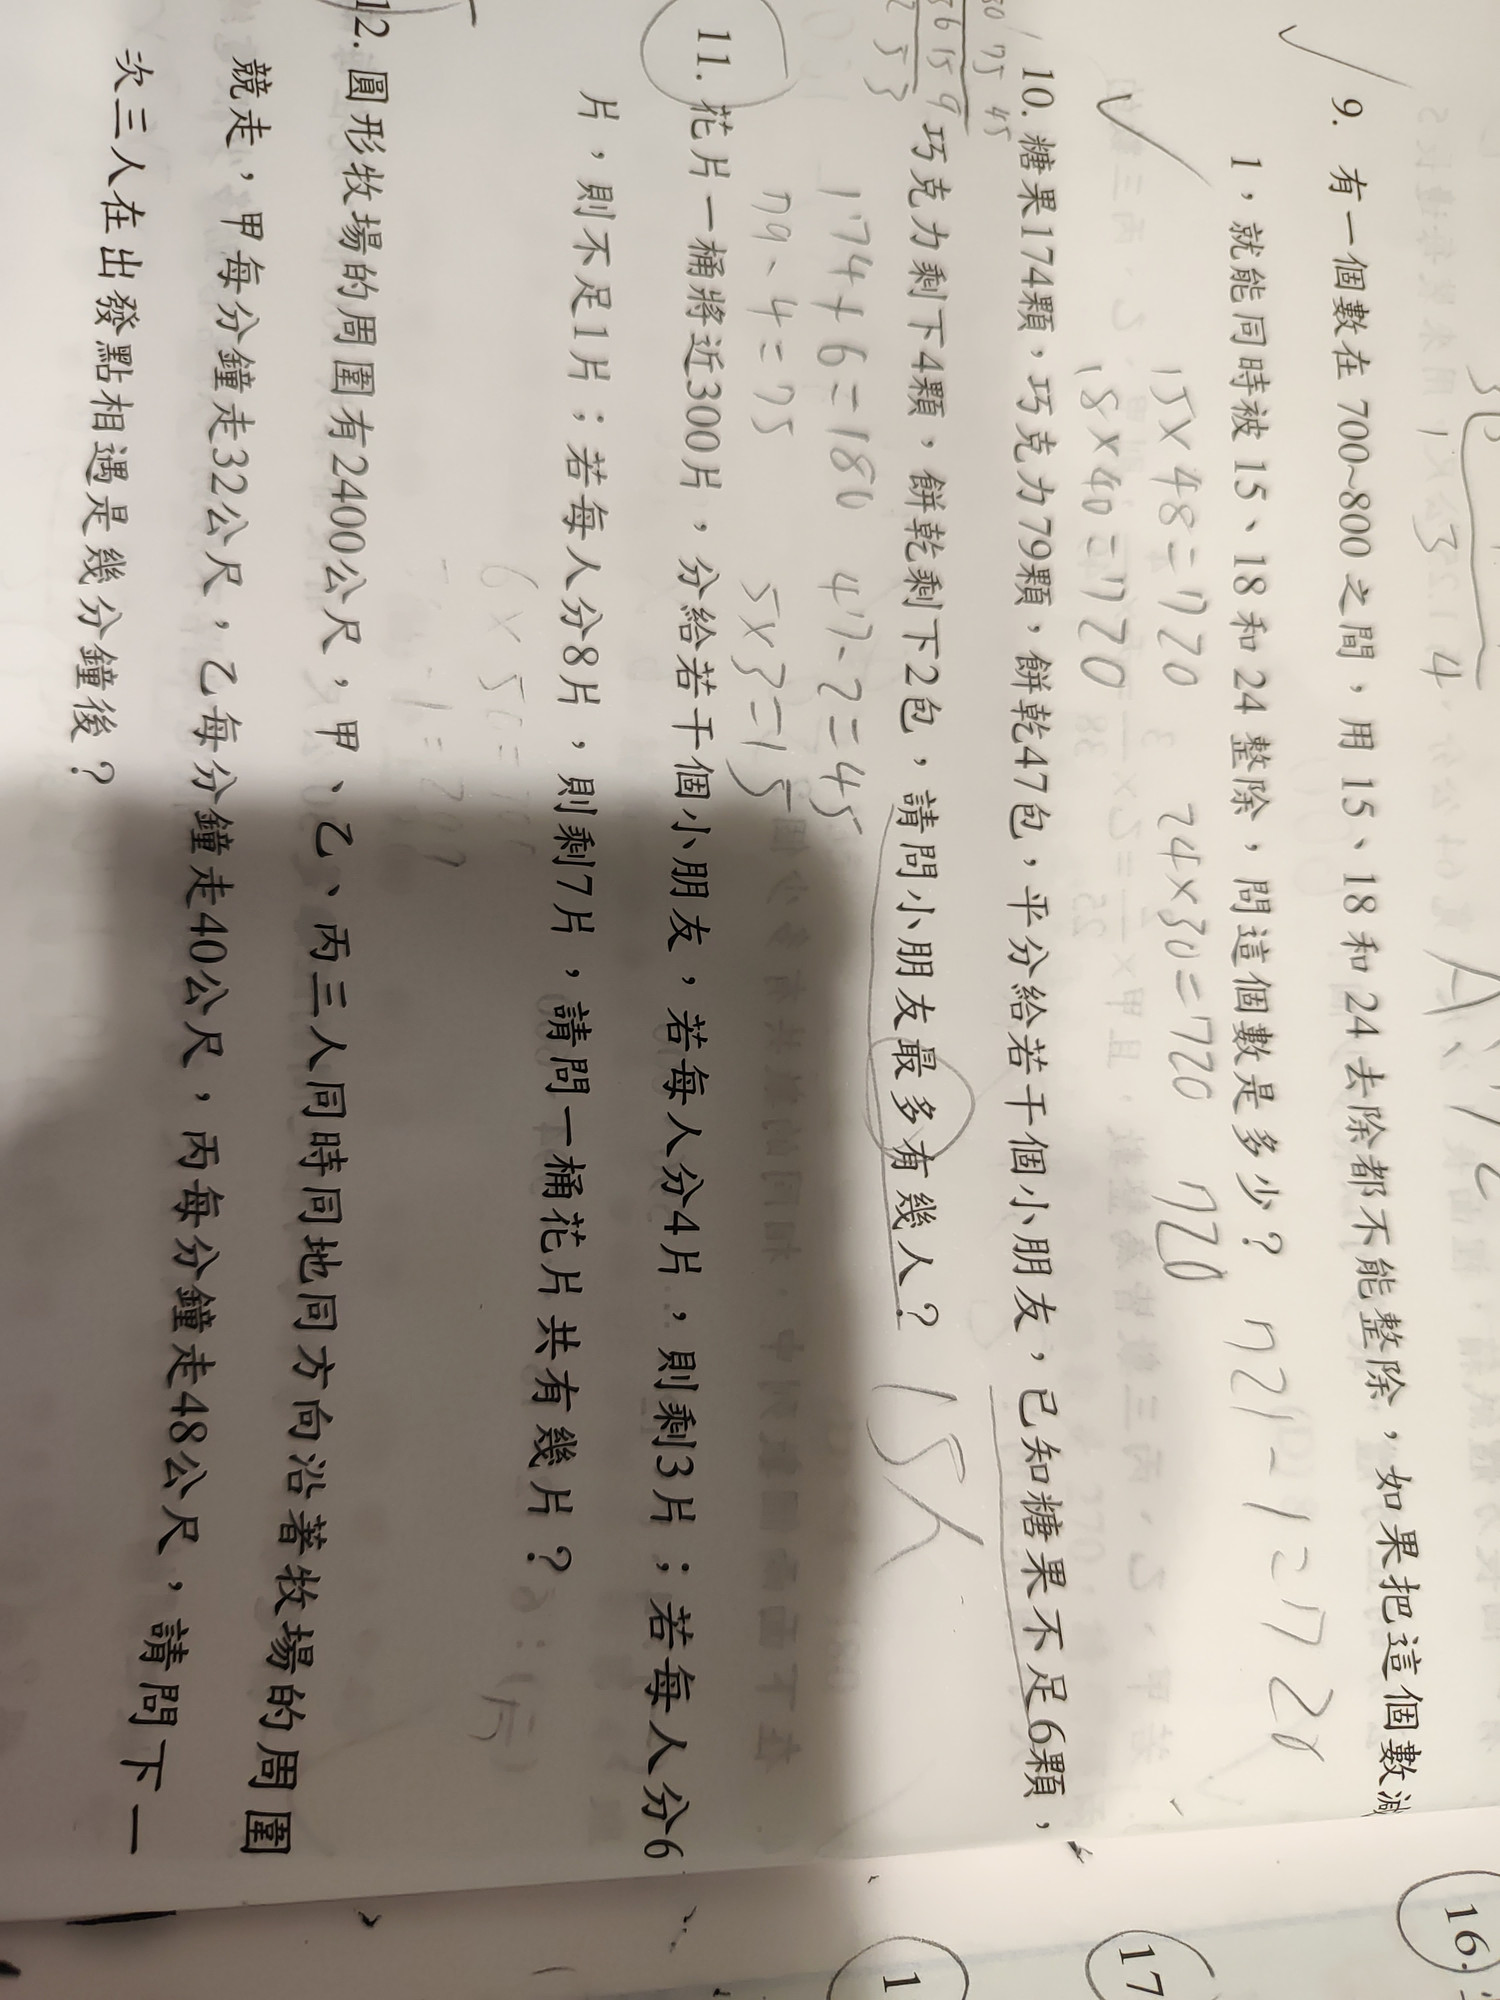 9. 有一個數在 700~800 之間，用 15、18 和 24 去除都不能整除，如果把這個數減
1，就能同時被 15、18 和 24 整除，問這個數是多少？ 721-1=720
15×48=720 24×30=720 720
18×40=720
10. 糖果174顆，巧克力79顆，餅乾47包，平分給若干個小朋友，已知糖果不足6顆，
巧克力剩下4顆，餅乾剩下2包，請問小朋友最多有幾人？ 15人
174+6=180 47-2=45
79-4=75 5×3=15
11. 花片一桶將近300片，分給若干個小朋友，若每人分4片，則剩3片；若每人分6
片，則不足1片；若每人分8片，則剩7片，請問一桶花片共有幾片？
12. 圓形牧場的周圍有2400公尺，甲、乙、丙三人同時同地同方向沿著牧場的周圍
競走，甲每分鐘走32公尺，乙每分鐘走40公尺，丙每分鐘走48公尺，請問下一
次三人在出發點相遇是幾分鐘後？
16.
17
1